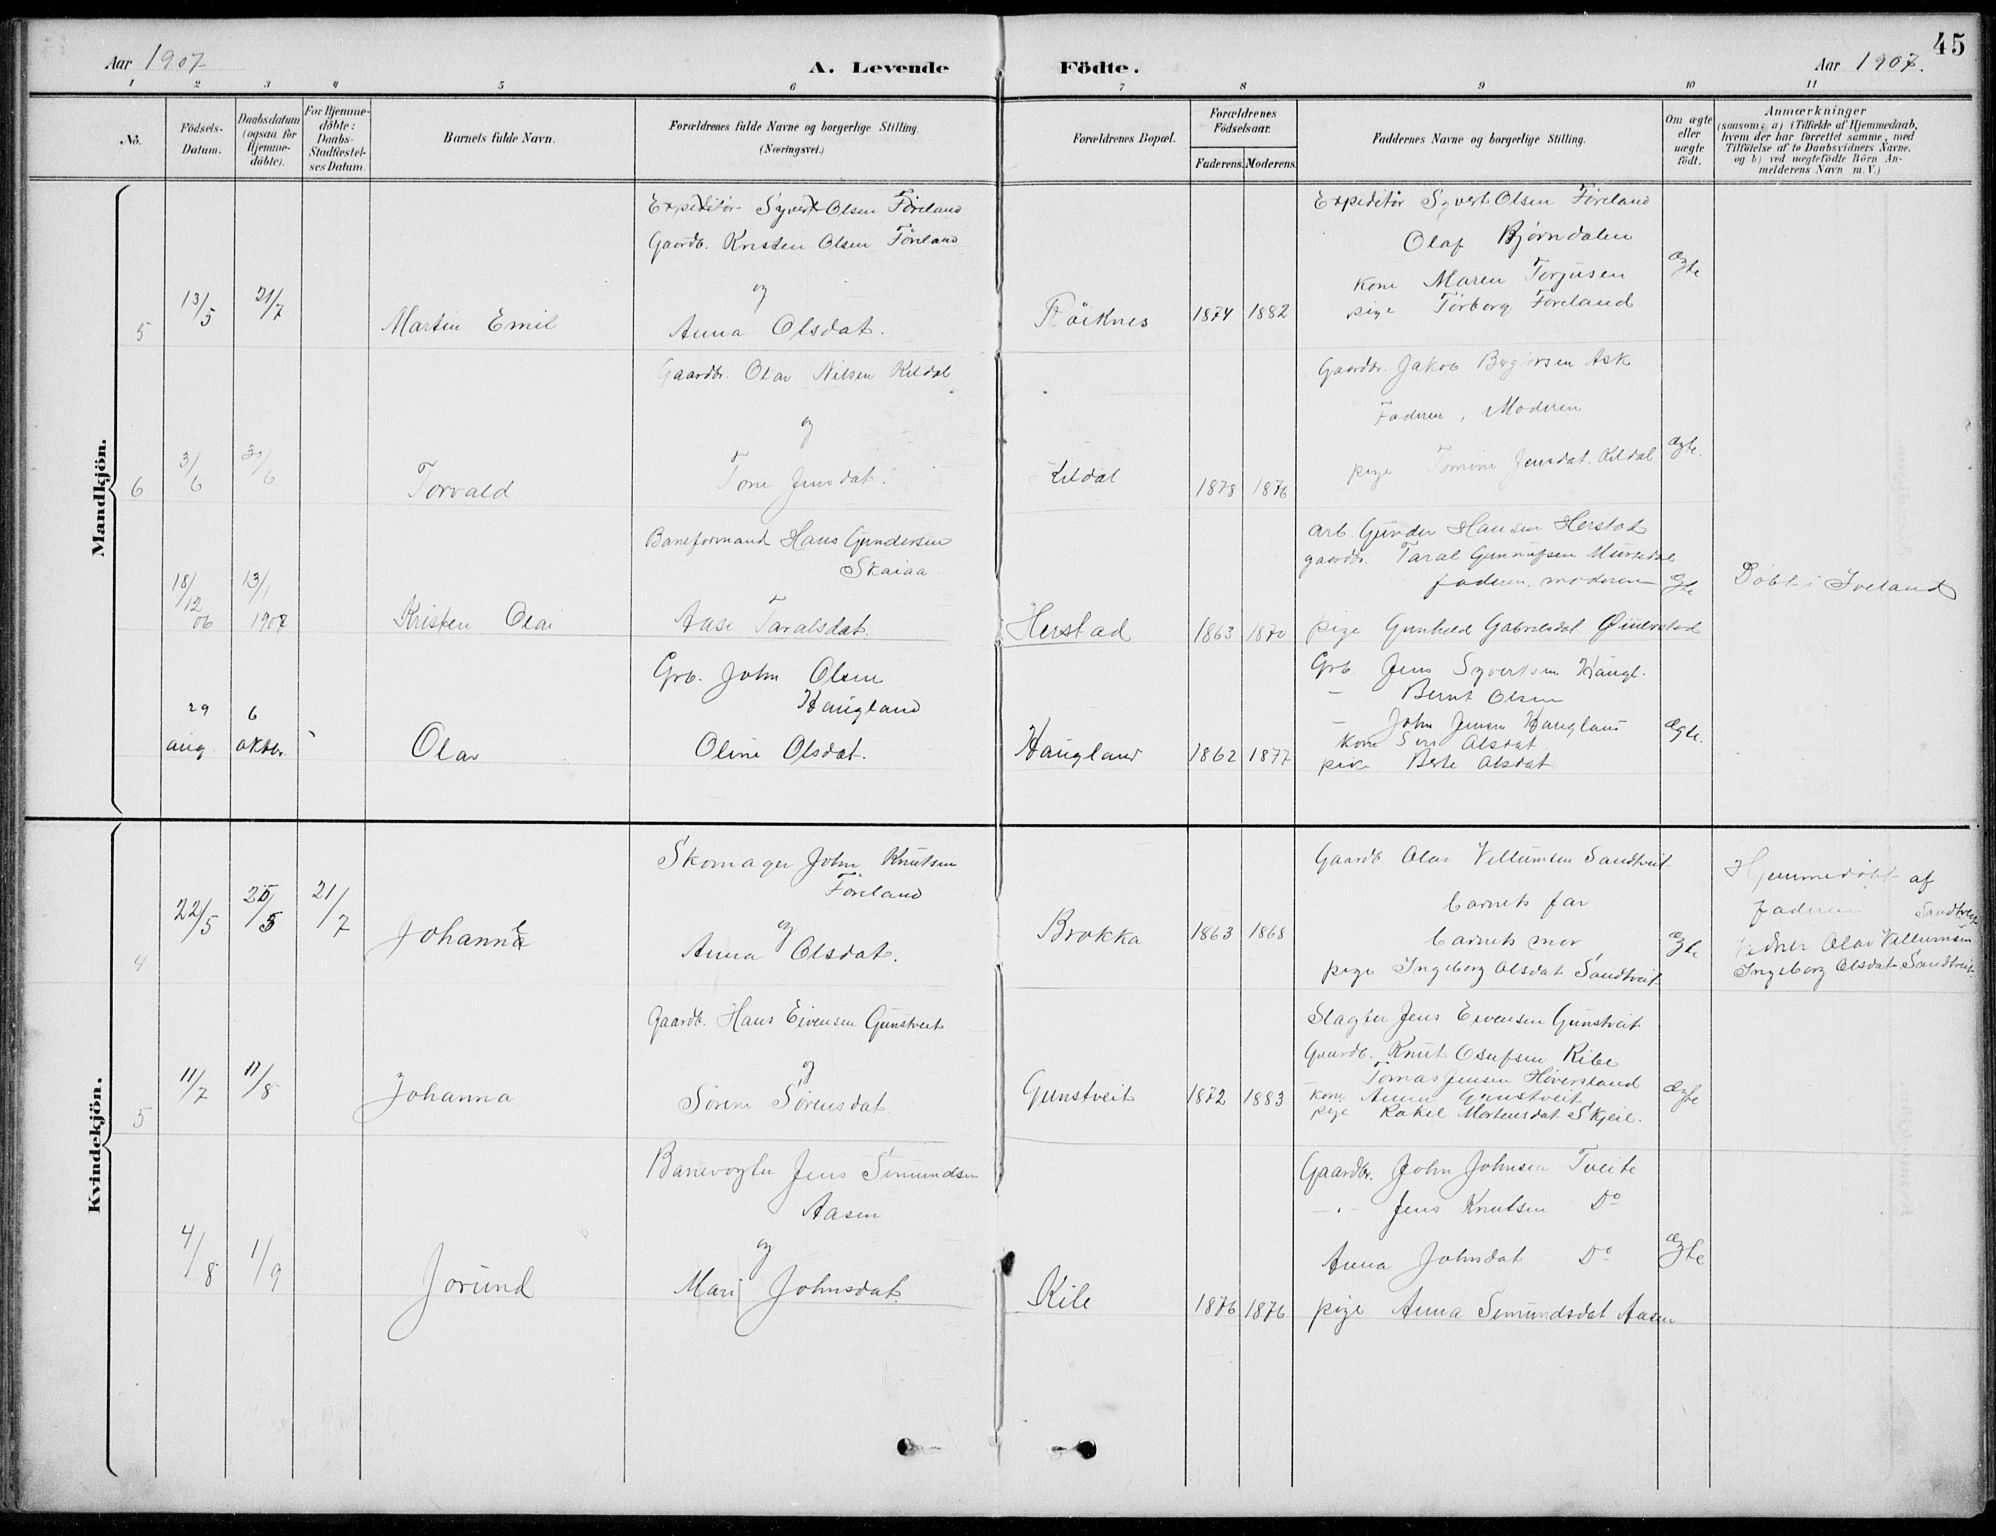 45
Aar 1907
A. Levende Födte.
Aar 1907.
1 2 3 4 5 6 7 8 9 10 11
Nō.
Födsels-
Datum.
Daabsdatum
(ogsaa for
Hjemme-
döbte).
For Hjemme-
döbte:
Daabs-
Stadfæstel-
ses Datum.
Barnets fulde Navn.
Forældrenes fulde Navne og borgerlige Stilling.
(Næringsvei.)
Forældrenes Bopæl.
Forældrenes
Födselsaar.
Faderens. Moderens.
Faddernes Navne og borgerlige Stilling.
Om ægte
eller
uægte
födt.
Anmærkninger
(saasom: a) i Tilfælde af Hjemmedaab,
hvem der har forrettet samme, med
Tilföielse af to Daabsvidners Navne.
og b) ved uegtefödte Börn An-
melderens Navn m. V.)
Mandkjön.
5
13/5
21/7
Martin Emil
Expeditör Syvert Olsen Föreland
Gaardb. Kristen Olsen Föreland
og
Anna Olsdat.
1874 1882
Expeditör Syvert Olsen Föreland
Olaf Bjørndalen
Kone Maren Torjusen
pige Torborg Föreland
Ægte
6
3/6
Torvald
Gaardbr. Olav Nilsen Kildal
og
Tone Jensdat.
Kildal
1878 1876
Gaardbr. Jakob Ask
Faderen, Moderen
pige Tomine Jensdat. Kildal
Ægte.
18/12 06
13/1 1907
Kristen Olai
Baneformand Hans Gundersen
Skaiaa
Aase Taralsdat.
Herstad
1863 1870
arb Gunder Hansen Herstad
gaardbr. Taral
faderen, moderen
pige Gunhild Gabrielsdat
Ægte
Döbt i Iveland
29 aug.
6 oktbr.
Olav
Grb. John Olsen
Haugland
Oline Olsdat.
Haugland
1862 1877
Grb. Jens Syvertsen Haugl.
- Bernt Olsen
- John Jensen Haugland
Kone Siri Olsdat
pike Berte Olsdat
Ægte.
Kvindekjön.
4
22/5
21/7
Johanne
Skomager John Knutsen
Föreland
og
Anna Olsdat.
Brokka
1863 1868
Gaardb. Olav Vellumsen Sandtveit
barnets far
barnets mor
pige Ingeborg Olsdat Sandtveit
Ægte
Hjemmedöbt af
faderen
Vidner Olav Vellumsen Sandtveit
Ingeborg Olsdat Sandtveit.
5
11/7
11/8
Johanna
Gaardb. Hans Eivensen Gunstveit
og
Sörine Sörensdat
Gunstveit
1872 1883
Slagter Jens Eivensen Gunstveit
Gaardb. Knut Osufsen Ribe
- Tomas Jensen Höversland
kone Anna Gunstveit
pige Rakel Mortensdat Skjeie.
Ægte
4/8
1/9
Jorund
Banevogter Jens Simundsen
Aasen
og
Mari Johnsdat.
Kile
1876 1876
Gaardbr. John Johnsen Tveite
-"- Jens Knutsen Do
Anna Johnsdat Do
pige Anna Simundsdat Aasen
Ægte